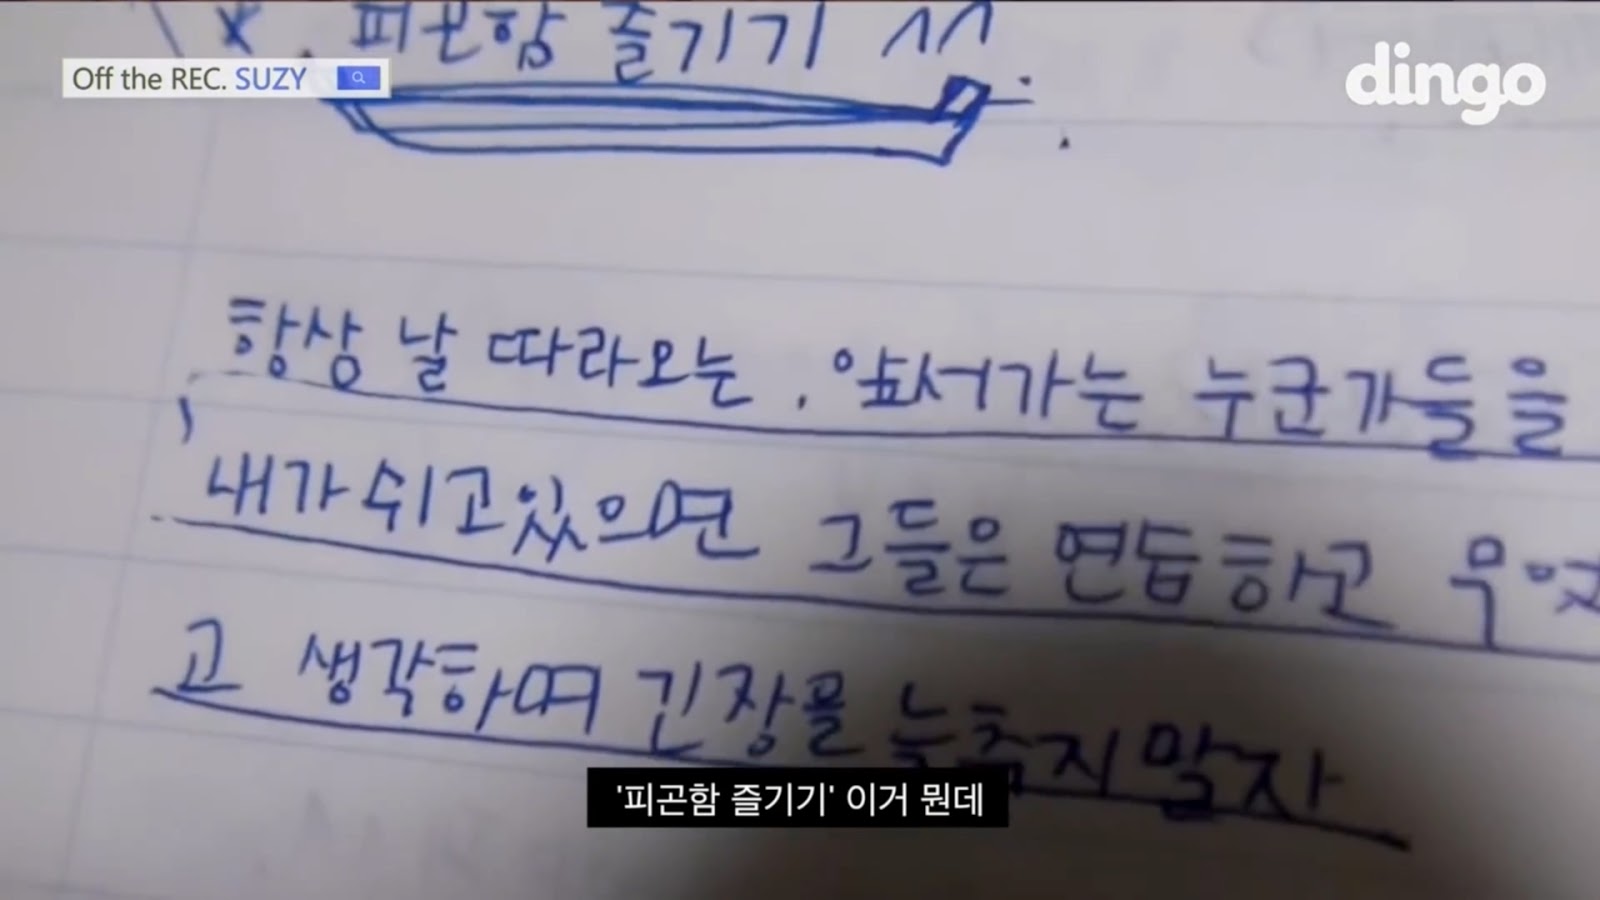 * 피곤함 즐기기 ^^
Off the REC. SUZY
dingo
항상 날 따라오는, 앞서가는 누군가들을
내가 쉬고있으면 그들은 연습하고
고 생각하며 긴장을 늦추지 말자
'피곤함 즐기기' 이거 뭔데